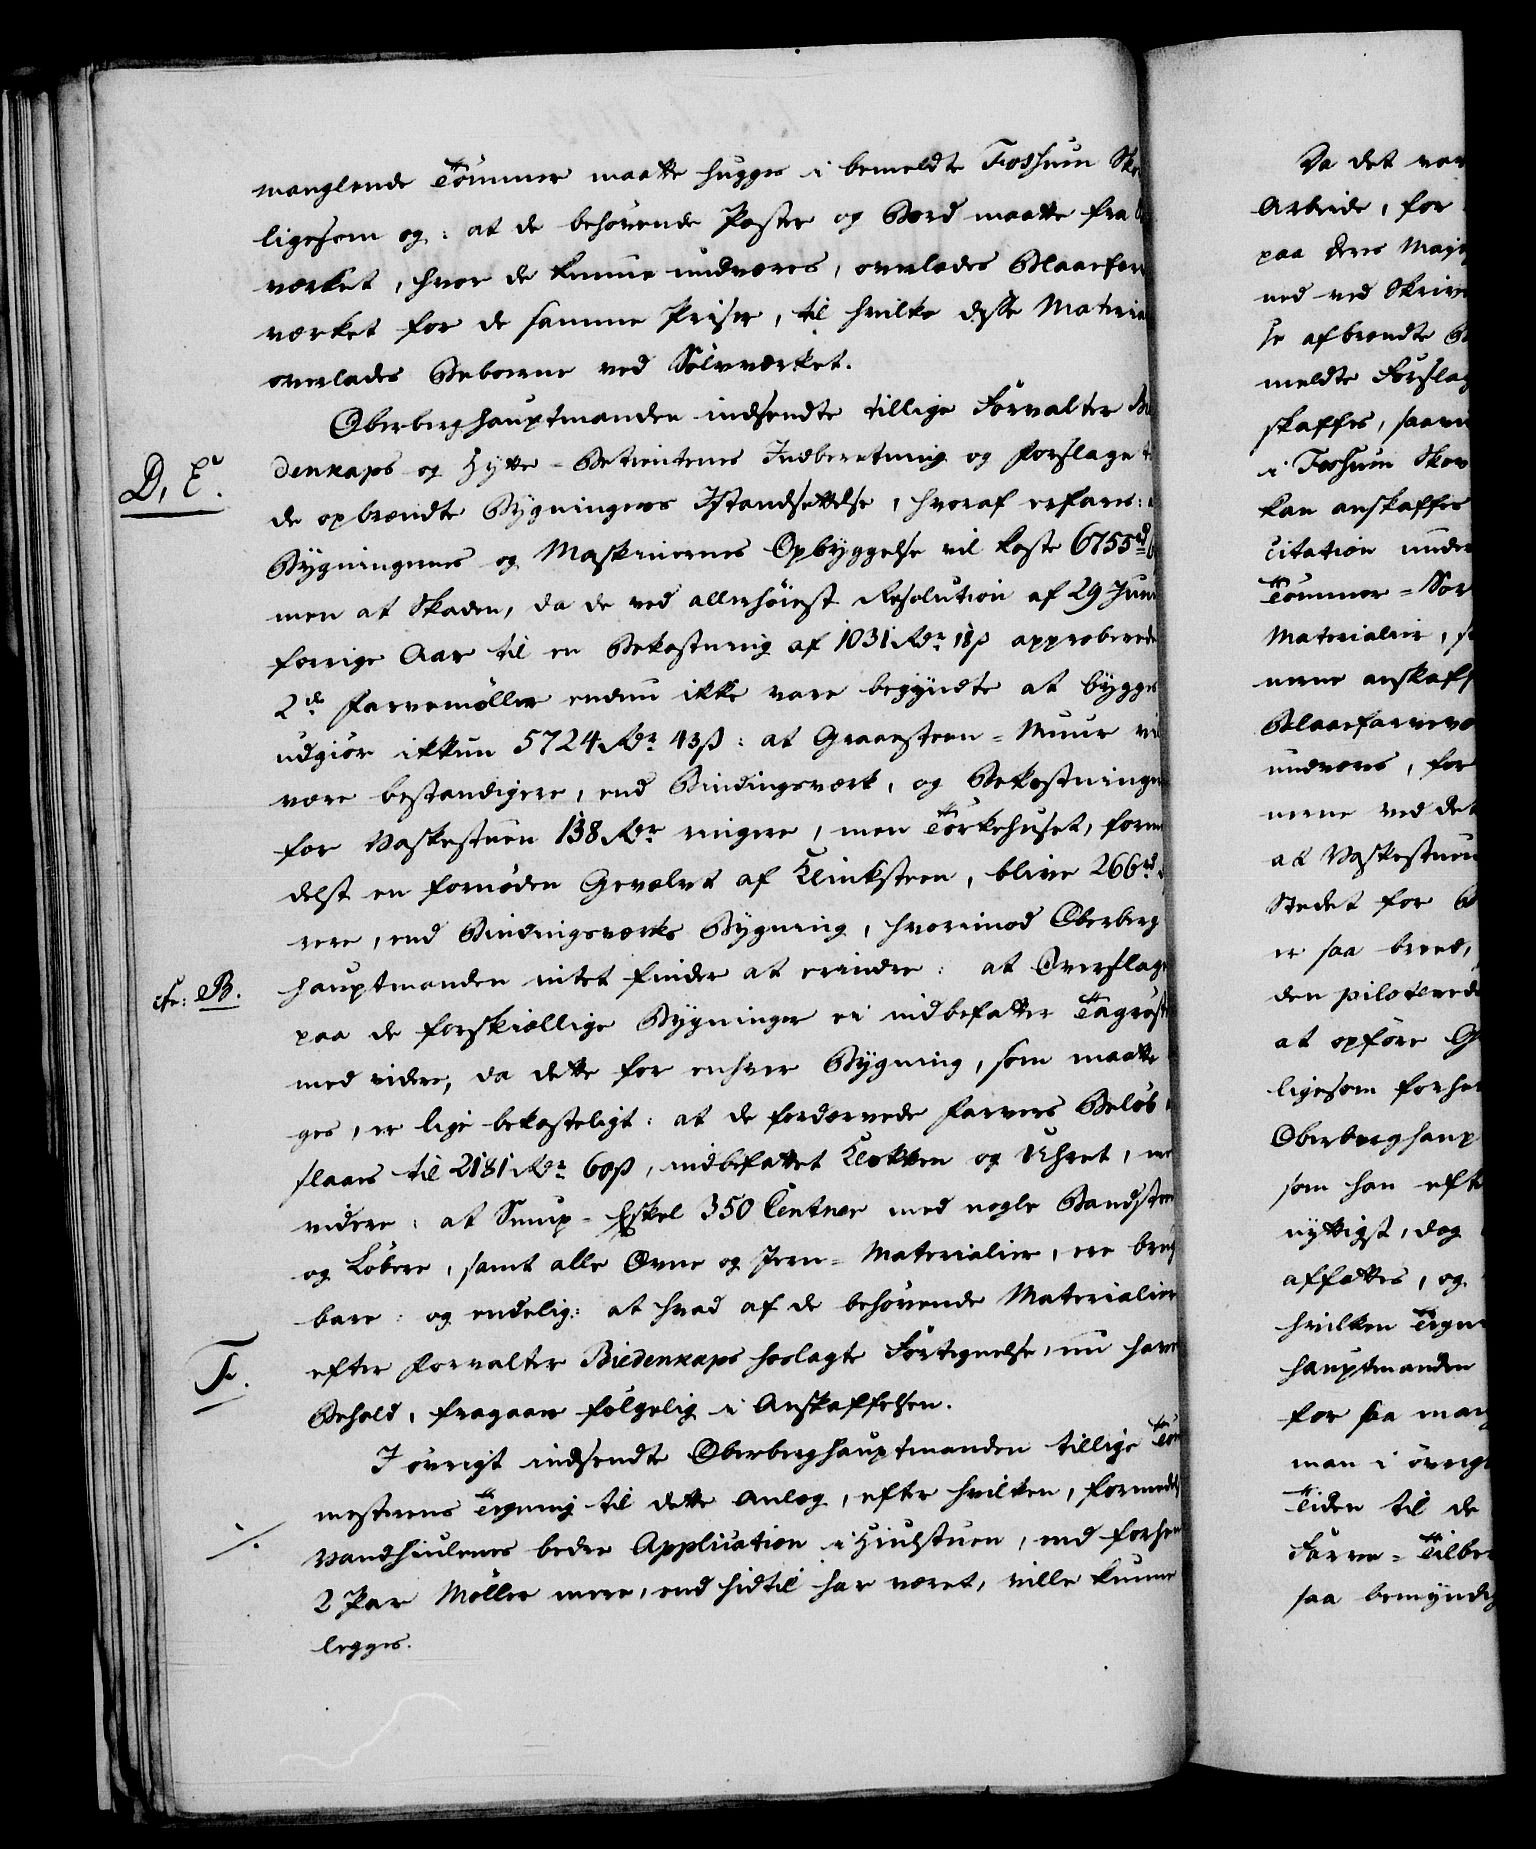 manglende Tømmer maatte hugges i bemeldte Fossum Sko
ligesom og: at de behøvende Poster og Bord maatte fra
værket, hvor de kunne undværes, overlades Blaafarve
værket for de samme Priser, til hvilke disse Materia
overlades Beboerne ved Sølvværket.
Oberberghauptmanden indsendte tillige Forvalter Bie
D, E.
denkaps og Hytte-Betienternes Indberetning og Forslage t
de opbrændte Bygningers Istandsættelse, hvoraf erfares:
Bygningernes og Maskinernes Opbyggelse vil koste 6755 rd
men at Skaden, da de ved allerhøiest Resolution af 29 Juni
forrige Aar til en Bekostning af 1031 Rdr 18 ß approberede
2de Farvemøller endnu ikke vare begyndte at bygges
udgiør ikkun 5724 Rdr 43 ß: at Graaesteen-Muur vil
være bestandigere, end Bindingsværk, og Bekostningen
for Vaskestuen 138 Rdr ringere, men Tørkehuset, forme
delst en fornøden Gevælvt af Klinksteen, blive 266 rd
rere, end Bindingsværks Bygning, hvorimod Oberberg
cfr: B.
hauptmanden intet finder at erindre: at Overslage
paa de forskiællige Bygninger ei indbefatter Tagrøste
med videre, da dette for enhver Bygning, som maatte
ges, er lige bekosteligt: at de fordærvede Farvers Beløb
slaaes til 2181 Rdr 60 ß, indbefattet Klokken og Uhret, m
videre: at Smup-Eskel 350 Centner med nogle Sandsteen
og Løbere, samt alle Ovne og Jern-Materialier, ere brug
bare: og endelig: at hvad af de behøvende Materialier
F.
efter Forvalter Biedenkaps hoslagte Fortegnelse, nu haves
Behold, fragaaer følgelig i Anskaffelsen.
I øvrigt indsendte Oberberghauptmanden tillige Tøm
mesterens Tegning til dette Anlæg, efter hvilken, formedelst
Vandhiulenes bedre Application i Hiulstuen, end forhen
2 Par Møller mere, end hidtil har været, ville kunne
legges.
Da det var
Arbeide, for
paa Deres Maje
ned ved Skrive
se afbrændte B
meldte Forslag
skaffes, saave
i Fossum Skov
kan anskaffes
citation under
Tømmer-Sor
Materialier, s
nerne anskaff
Blaafarvevæ
undværes, for
nerne ved det
at Vaskestuen
Stedet for B
er saa breed,
den piloterede
at opføre G
ligesom forhen
Oberberghaup
som han efte
nyttigst, dog
affattes, og
hvilken Tegn
hauptmanden
for saa man
man i øvrigt
Tiden til de
Farve-Tilbe
saa bemyndig